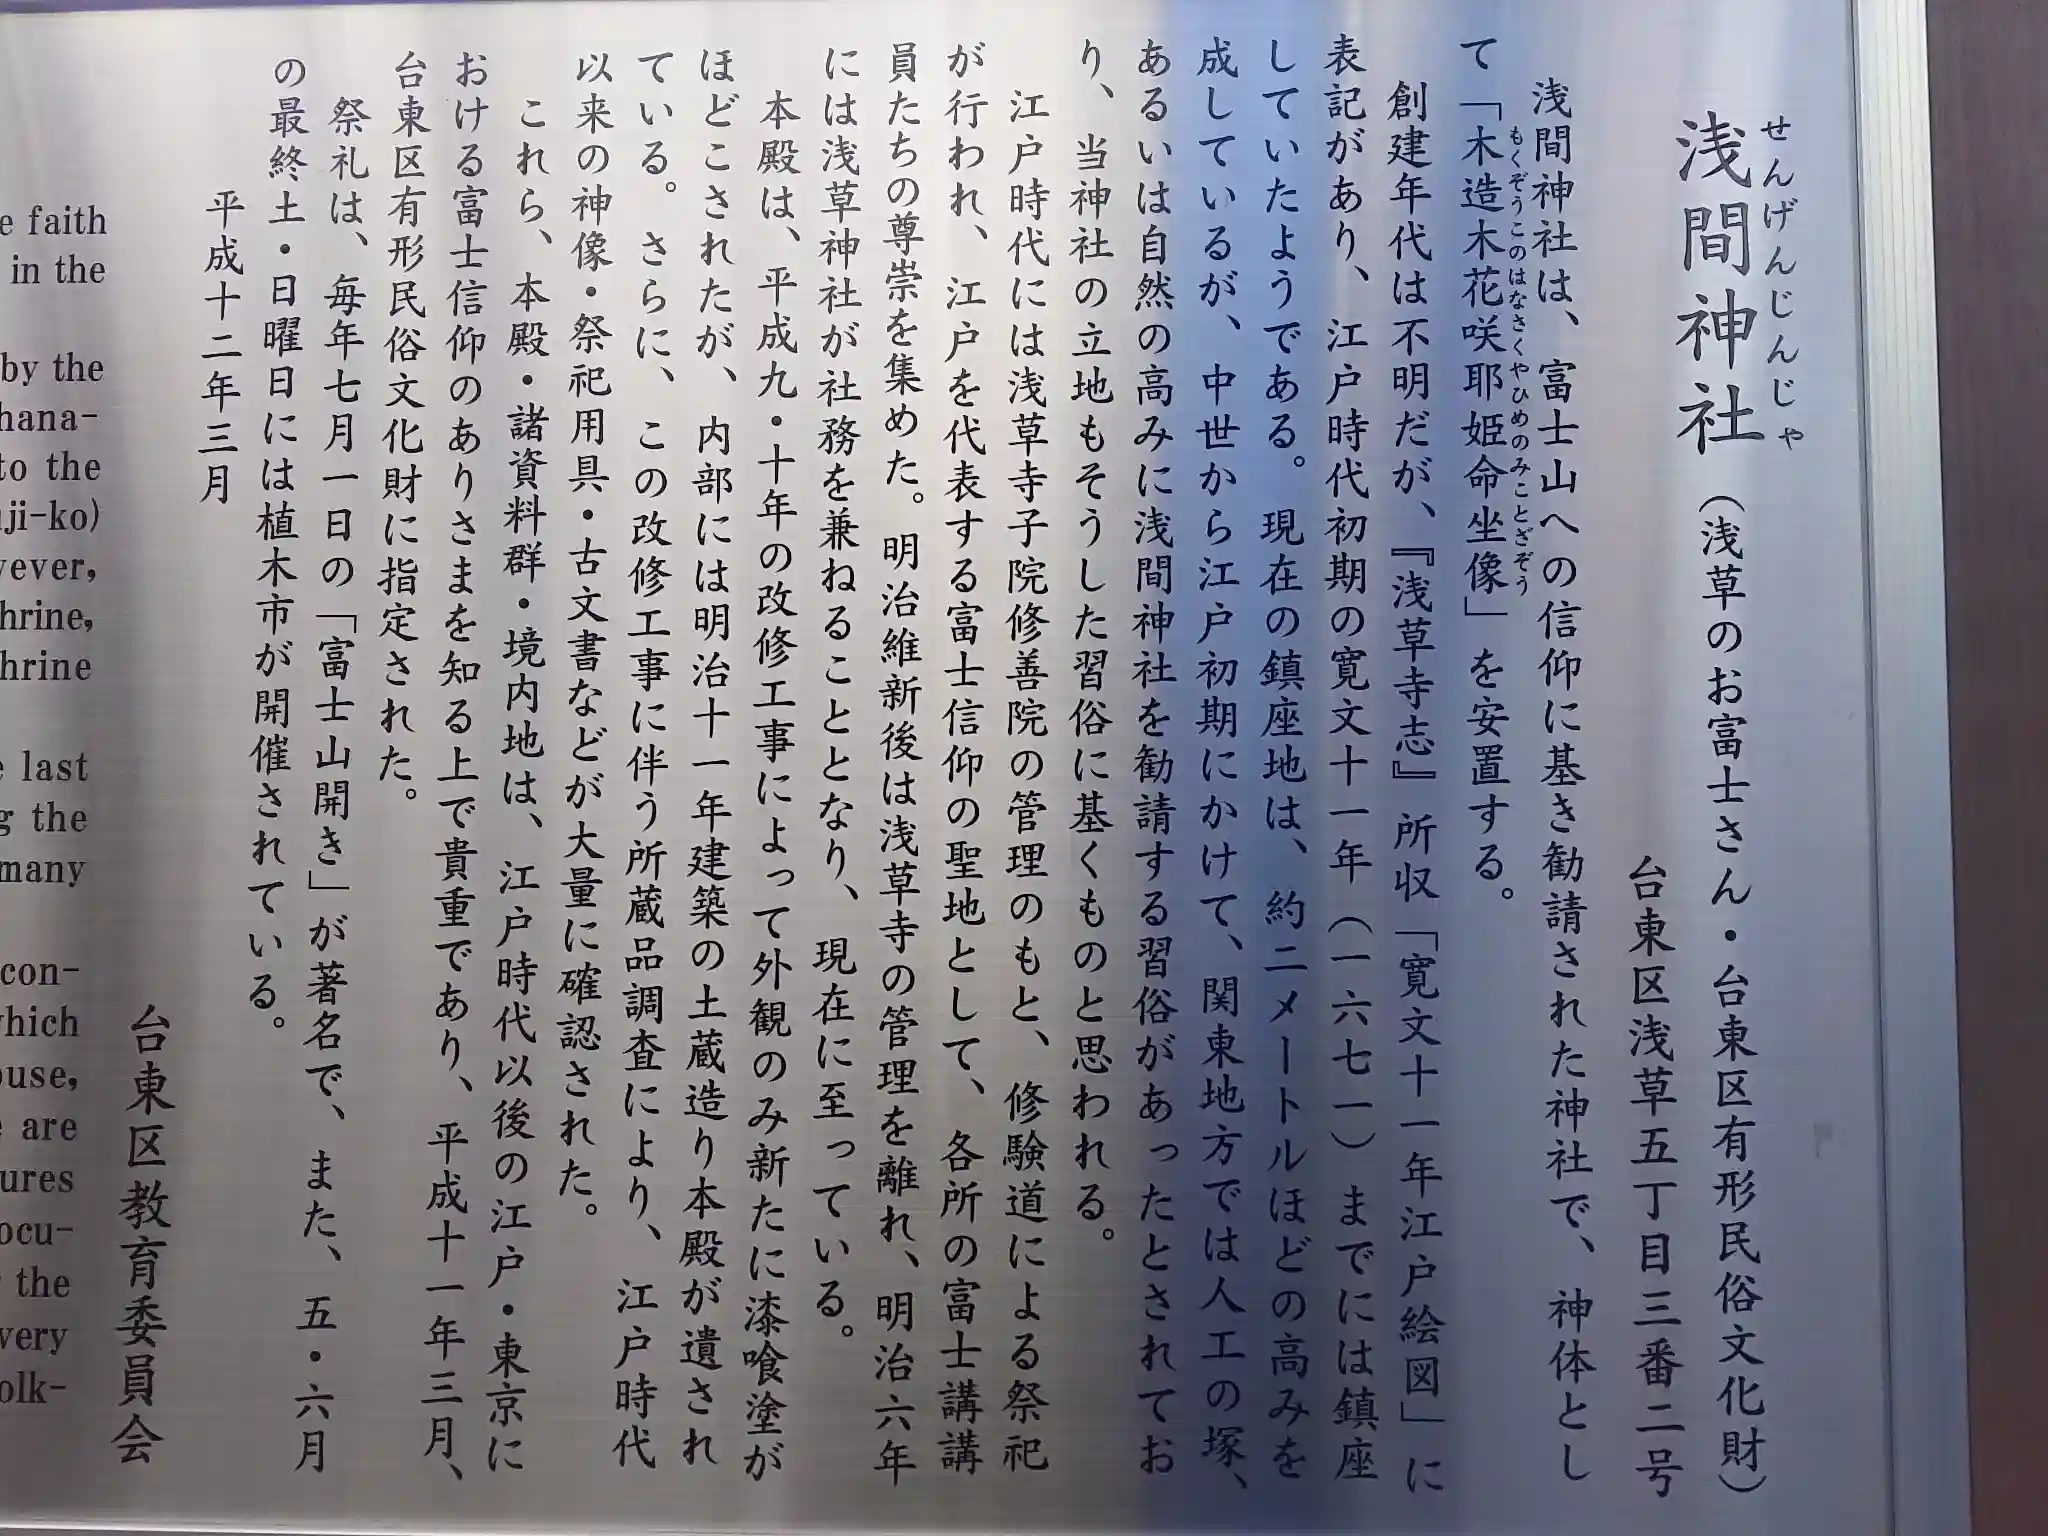 せんげんじんじゃ
浅間神社（浅草のお富士さん・台東区有形民俗文化財）
台東区浅草五丁目三番二号
浅間神社は、富士山への信仰に基き勧請された神社で、神体とし
もくぞうこのはなさくやひめのみことざぞう
て「木造木花咲耶姫命坐像」を安置する。
創建年代は不明だが、『浅草寺志』所収「寛文十一年江戸絵図」に
表記があり、江戸時代初期の寛文十一年（一六七一）までには鎮座
していたようである。現在の鎮座地は、約二メートルほどの高みを
成しているが、中世から江戸初期にかけて、関東地方では人工の塚、
あるいは自然の高みに浅間神社を勧請する習俗があったとされてお
り、当神社の立地もそうした習俗に基くものと思われる。
江戸時代には浅草寺子院修善院の管理のもと、修験道による祭祀
が行われ、江戸を代表する富士信仰の聖地として、各所の富士講講
員たちの尊崇を集めた。明治維新後は浅草寺の管理を離れ、明治六年
には浅草神社が社務を兼ねることとなり、現在に至っている。
本殿は、平成九・十年の改修工事によって外観のみ新たに漆喰塗が
ほどこされたが、内部には明治十一年建築の土蔵造り本殿が遺され
ている。さらに、この改修工事に伴う所蔵品調査により、江戸時代
以来の神像・祭祀用具・古文書などが大量に確認された。
これら、本殿・諸資料群・境内地は、江戸時代以後の江戸・東京に
おける富士信仰のありさまを知る上で貴重であり、平成十一年三月、
台東区有形民俗文化財に指定された。
祭礼は、毎年七月一日の「富士山開き」が著名で、また、五・六月
の最終土・日曜日には植木市が開催されている。
平成十二年三月
台東区教育委員会
e faith
in the
by the
hana-
to the
uji-ko)
vever,
hrine,
hrine
e last
g the
many
con-
which
ouse,
e are
ures
ocu-
the
very
olk-